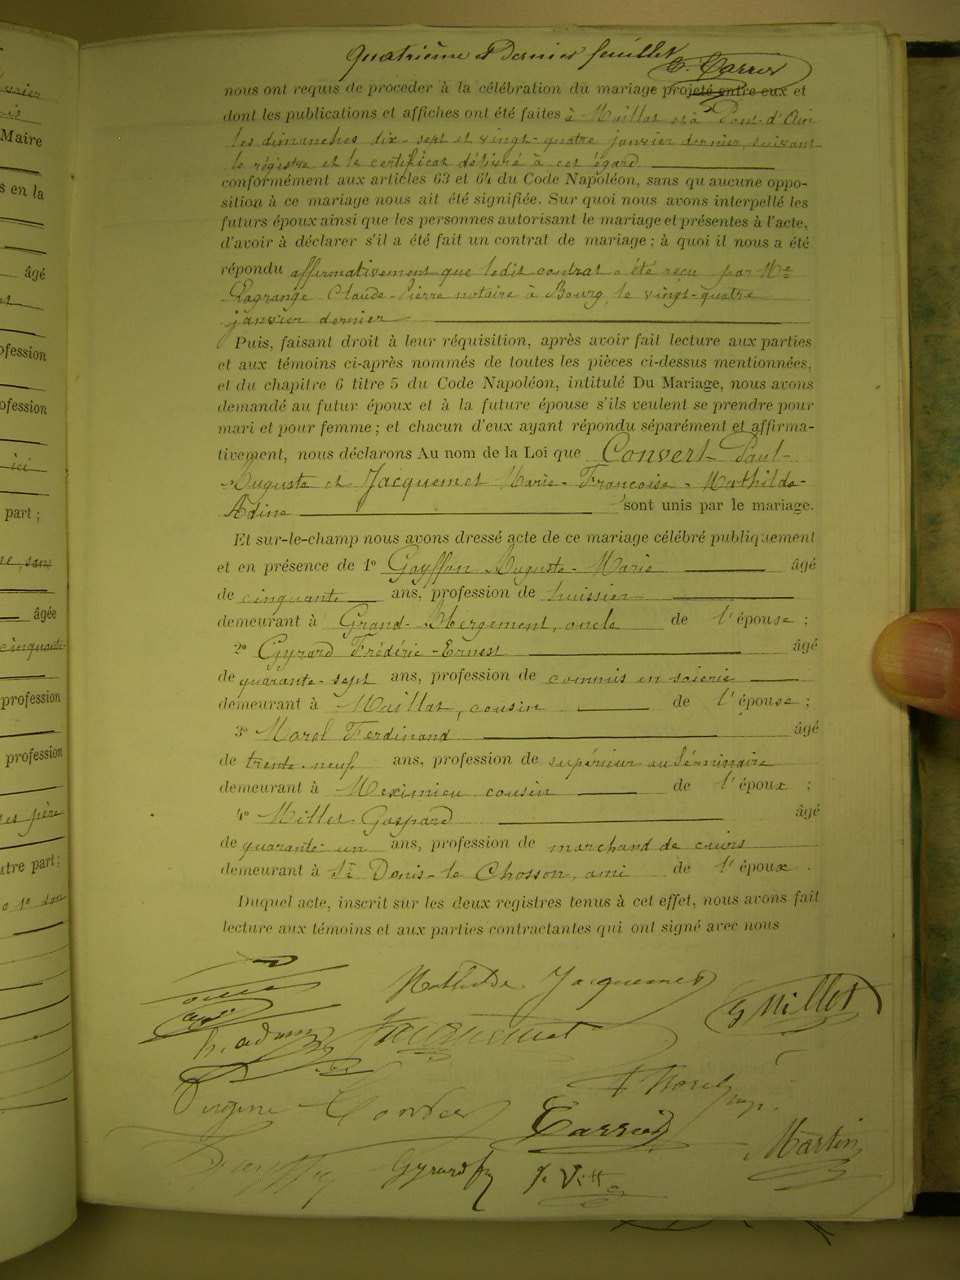 urier
Maire
s en la
âgé
ofession
ofession
ici
part ;
âgée
cinquante
profession
profession
père
utre part ;
Quatrième et Dernier feuillet
Carrier
nous ont requis de procéder à la célébration du mariage projeté entre eux et
dont les publications et affiches ont été faites à Maillat et à Pont-d'Ain
les dimanches dix-sept et vingt-quatre janvier dernier, suivant
le registre et le certificat délivré à cet égard
conformément aux articles 63 et 64 du Code Napoléon, sans qu'aucune oppo-
sition à ce mariage nous ait été signifiée. Sur quoi nous avons interpellé les
futurs époux ainsi que les personnes autorisant le mariage et présentes à l'acte,
d'avoir à déclarer s'il a été fait un contrat de mariage ; à quoi il nous a été
répondu affirmativement que ledit contrat a été reçu par Me
Lagrange Claude-Pierre notaire à Bourg, le vingt-quatre
janvier dernier
Puis, faisant droit à leur réquisition, après avoir fait lecture aux parties
et aux témoins ci-après nommés de toutes les pièces ci-dessus mentionnées,
et du chapitre 6 titre 5 du Code Napoléon, intitulé Du Mariage, nous avons
demandé au futur époux et à la future épouse s'ils veulent se prendre pour
mari et pour femme ; et chacun d'eux ayant répondu séparément et affirma-
tivement, nous déclarons Au nom de la Loi que Convert Paul-
Auguste et Jacquemet Marie-Françoise-Mathilde-
Adine sont unis par le mariage.
Et sur-le-champ nous avons dressé acte de ce mariage célébré publiquement
et en présence de 1o Goyffon Auguste-Marie âgé
de cinquante ans, profession de huissier
demeurant à Grand-Abergement, oncle de l'épouse ;
2o Gyrard Frédéric-Ernest âgé
de quarante-sept ans, profession de commis en soierie
demeurant à Maillat, cousin de l'épouse ;
3o Morel Ferdinand âgé
de trente-neuf ans, profession de supérieur au Séminaire
demeurant à Meximieu cousin de l'époux ;
4o Millet Gaspard âgé
de quarante-un ans, profession de marchand de cuirs
demeurant à St Denis-le Chosson, ami de l'époux .
Duquel acte, inscrit sur les deux registres tenus à cet effet, nous avons fait
lecture aux témoins et aux parties contractantes qui ont signé avec nous
Mathilde Jacquemet
G Millet
Jacquemet
F Morel
Virginie Convert
Carrier
Martin
Gyrard
J. Vitte